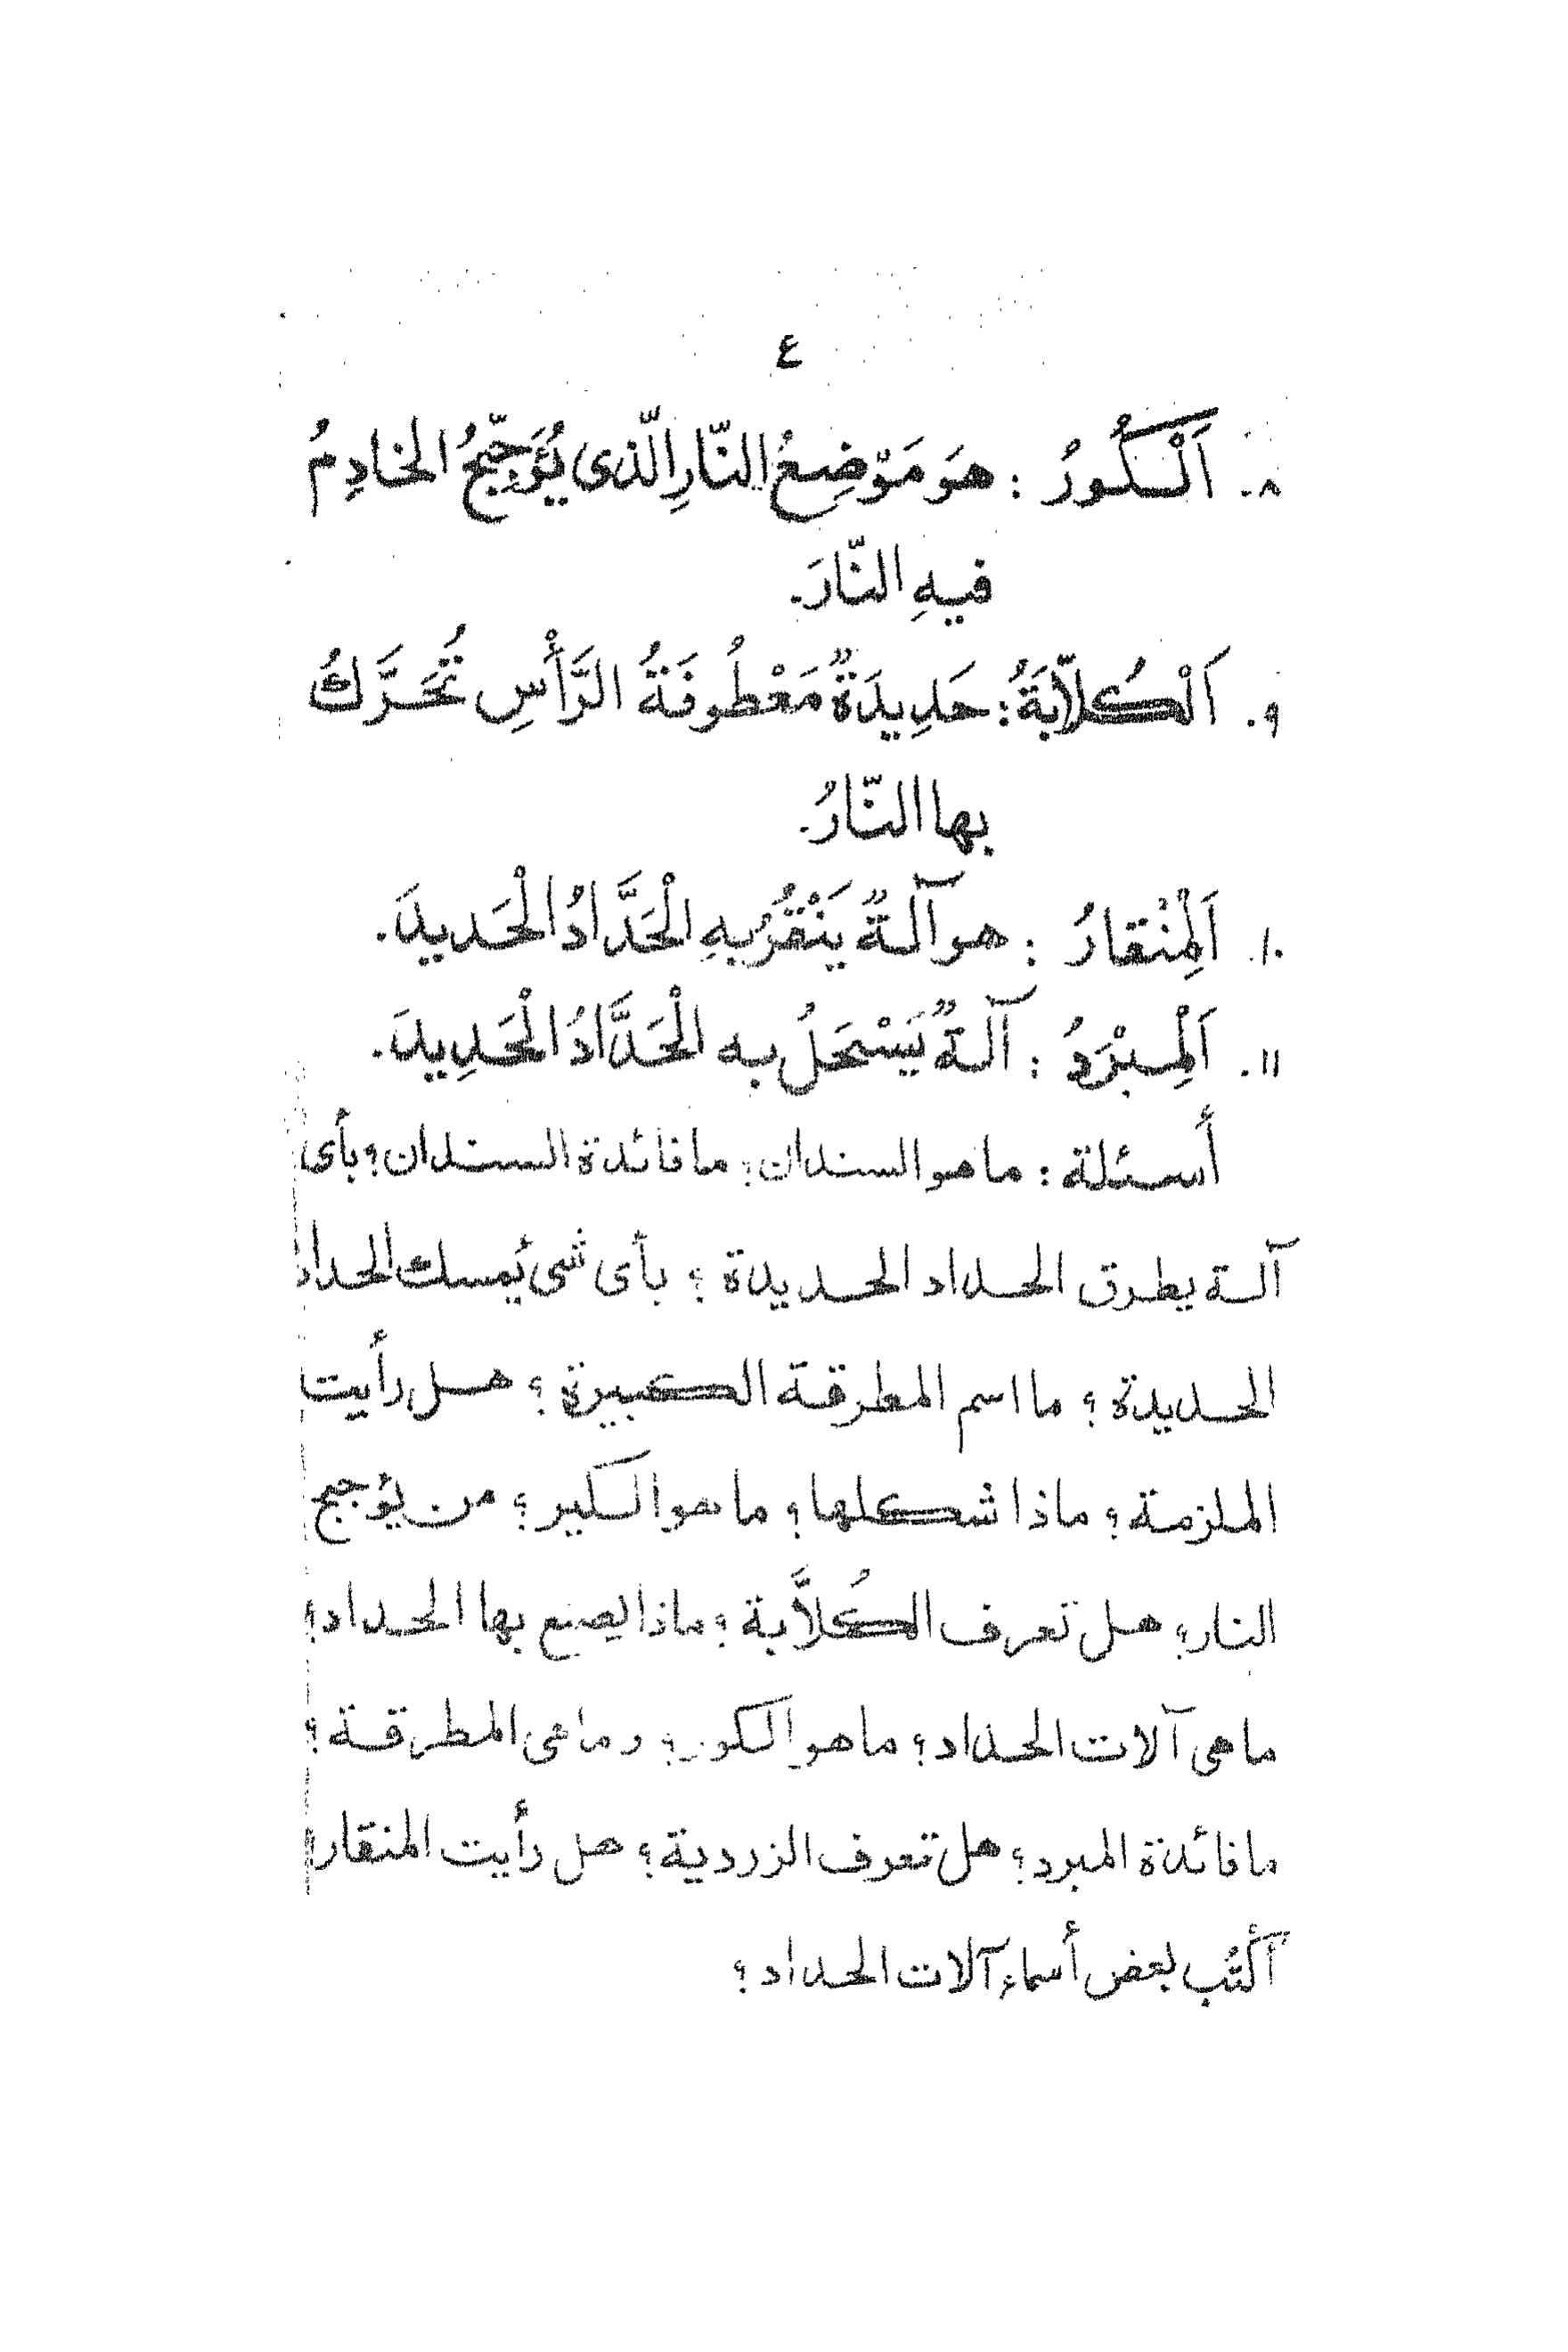 ٤
٨- اَلْكُورُ : هوَ مَوْضِعُ النّارِ الّذى يُؤَجِّجُ الخادِمُ
فيهِ النّارَ.
٩. اَلْكُلاّبَةُ : حَدِيدَةٌ مَعْطُوفَةُ الرَّأْسِ تُحَرَّكُ
بها النّارُ.
١٠. اَلْمِنْقارُ : هو آلةٌ يَنْقُرُ بِهِ الْحَدَّادُ الْحَديدَ.
١١. اَلْمِبْرَدُ : آلةٌ يَسْحَلُ به الْحَدَّادُ الْحَدِيدَ.
أسئلة : ما هو السندان؟ ما فائدة السندان؟ بأى
آلة يطرق الحداد الحديدة ؟ بأى شئ يُمسك الحداد
الحديدة ؟ ما اسم المطرقة الكبيرة ؟ هل رأيت
الملزمة ؟ ماذا شكلها ؟ ما هو الكير ؟ من يُؤجج
النار؟ هل تعرف الكُلاَّبة ؟ ماذا يصنع بها الحداد؟
ما هى آلات الحداد ؟ ما هو الكور؟ وما هى المطرقة ؟
ما فائدة المبرد ؟ هل تعرف الزردية ؟ هل رأيت المنقار؟
أكْتُب بعض أسماء آلات الحداد ؟